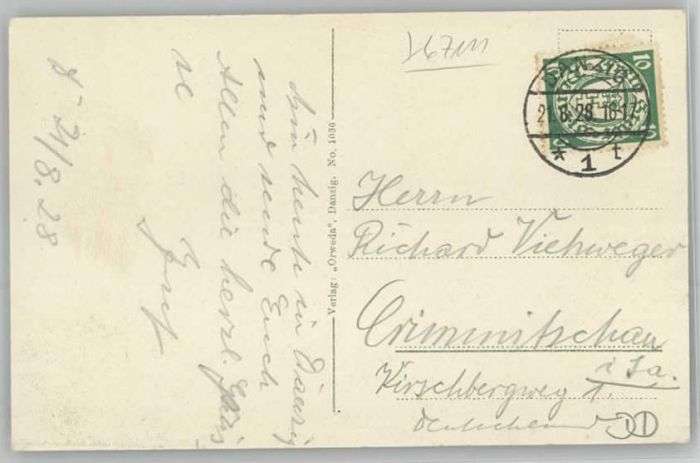 Bin heute in Danzig
und sende Euch
Allen die herzl. Grüße
D. 21/8.28
Verlag: „Orweda", Danzig. No. 1036
DANZIG
21.8.28 16-17
* 1 t
10
10
Herrn
Richard Viehweger
Crimmitschau
i Sa.
Kirschbergweg 1.
Deutschland